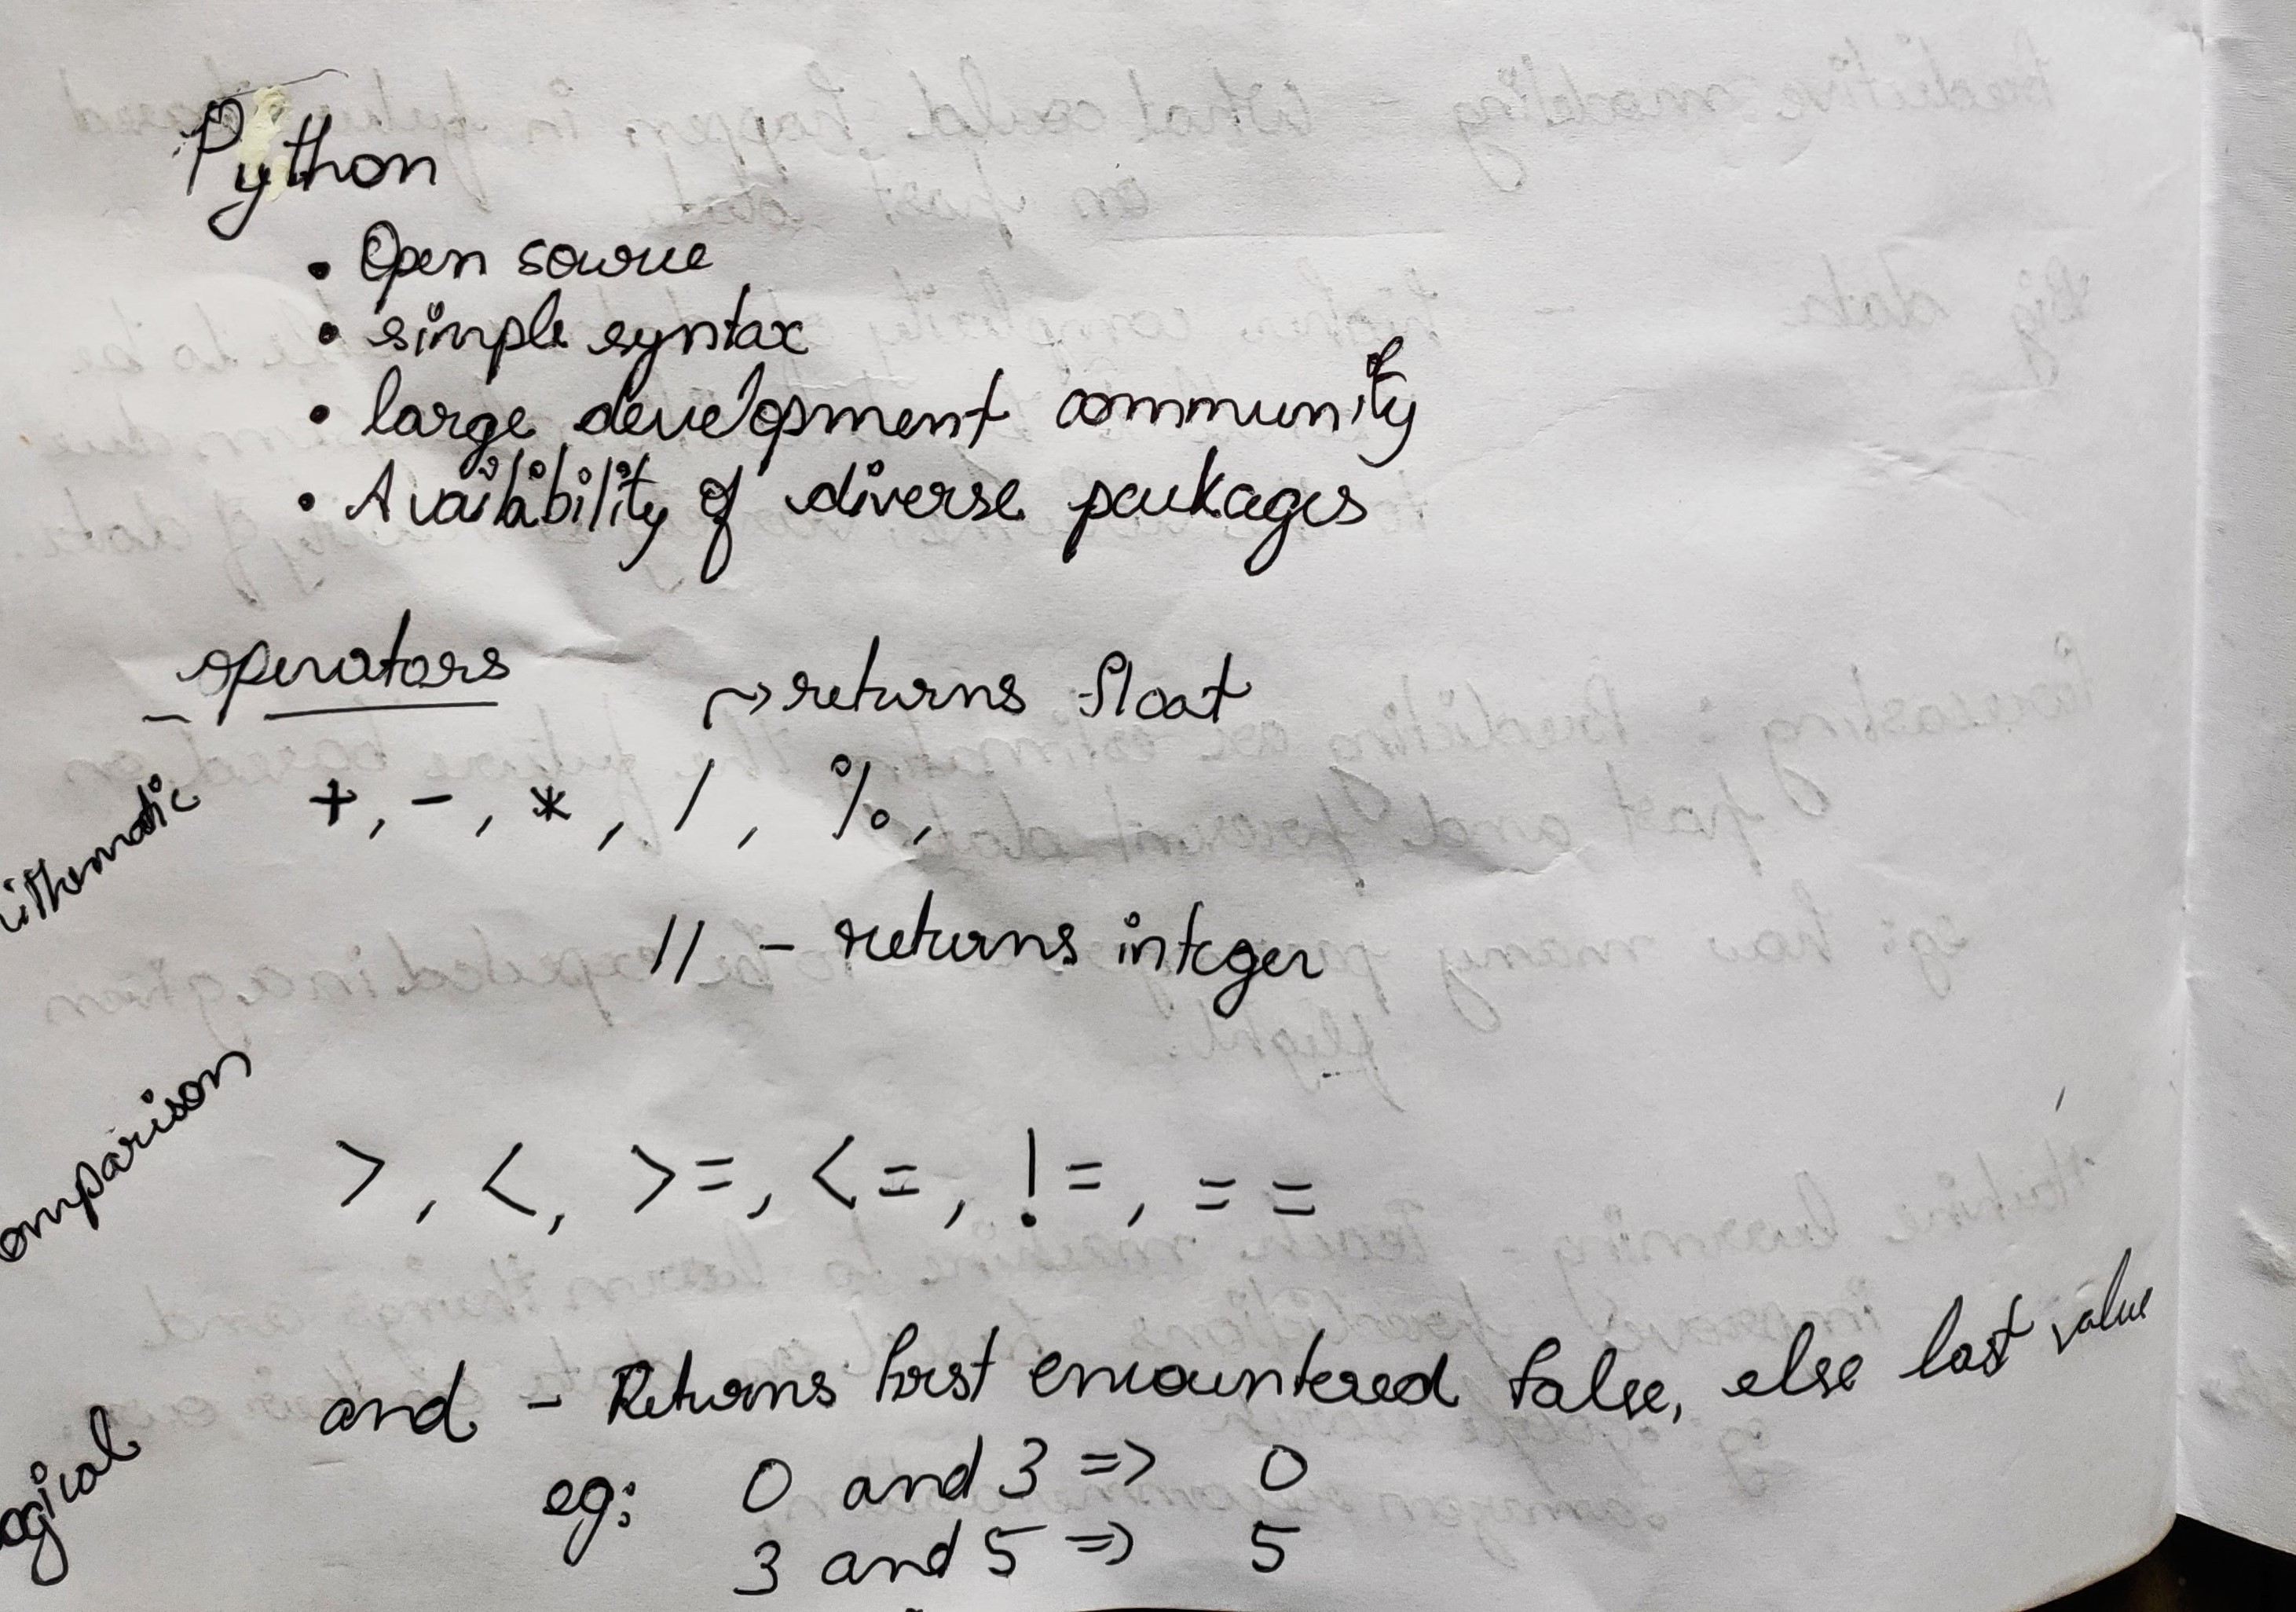 Python
• Open source
• simple syntax
• large development community
• Availability of diverse packages
- operators
↝ returns float
+, -, *, /, %,
// - returns integer
>, <, >=, <=, !=, ==
omparison
and - Returns first encountered false, else last value
ogical
eg: 0 and 3 => 0
3 and 5 => 5